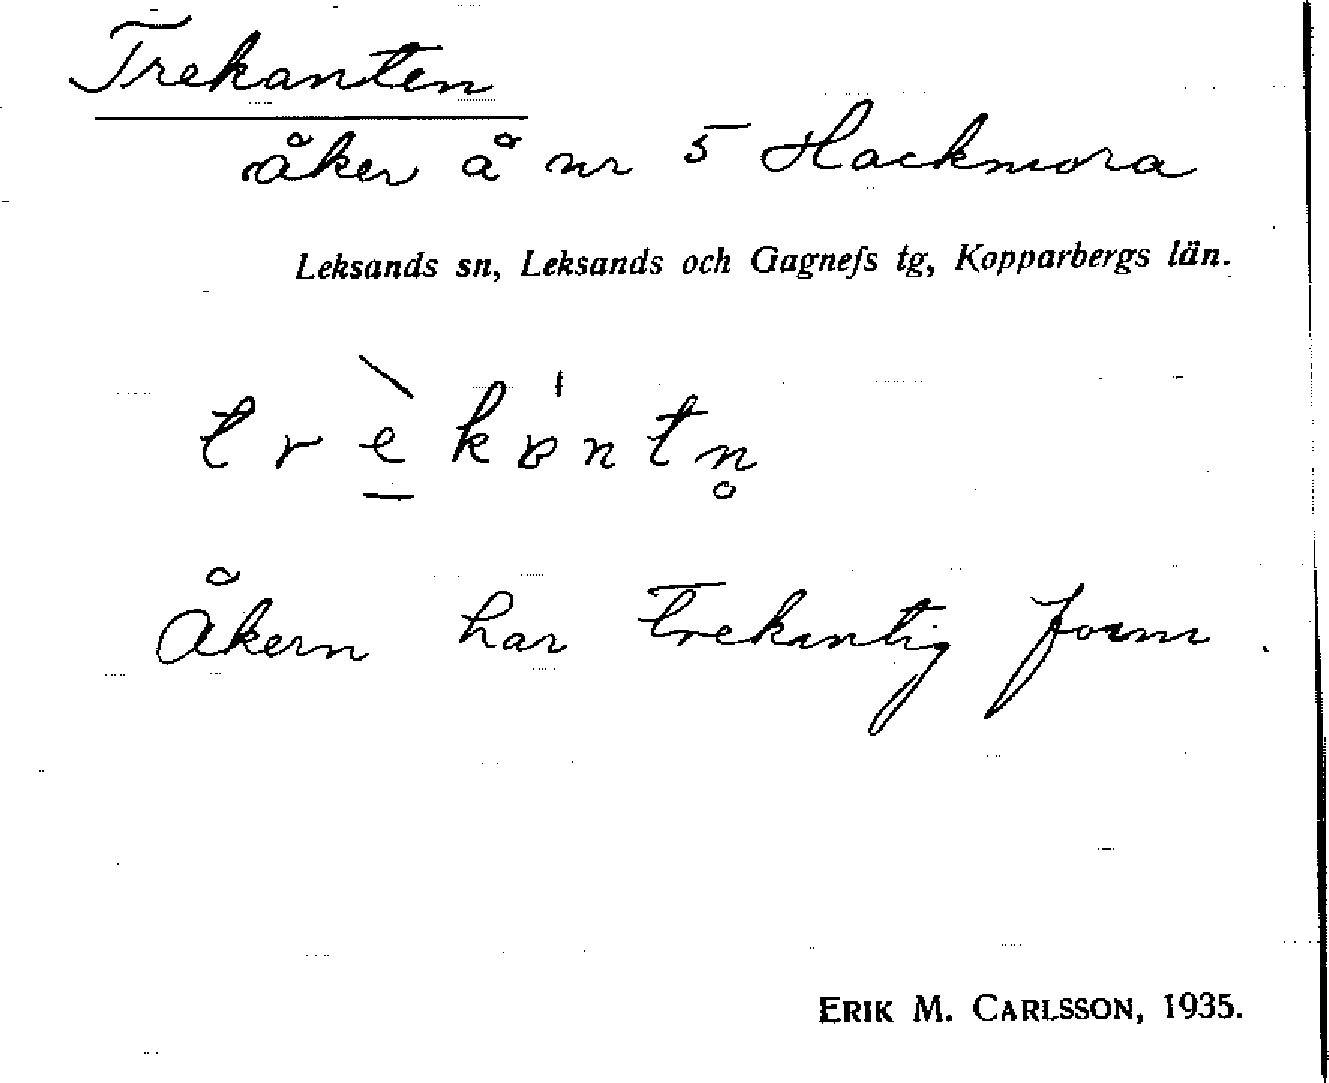 Trekanten
åker å nr 5 Hackmora
Leksands sn, Leksands och Gagnefs tg, Kopparbergs län.
trè̱kɒ̍ntn̥
Åkern har trekantig form.
ERIK M. CARLSSON, 1935.